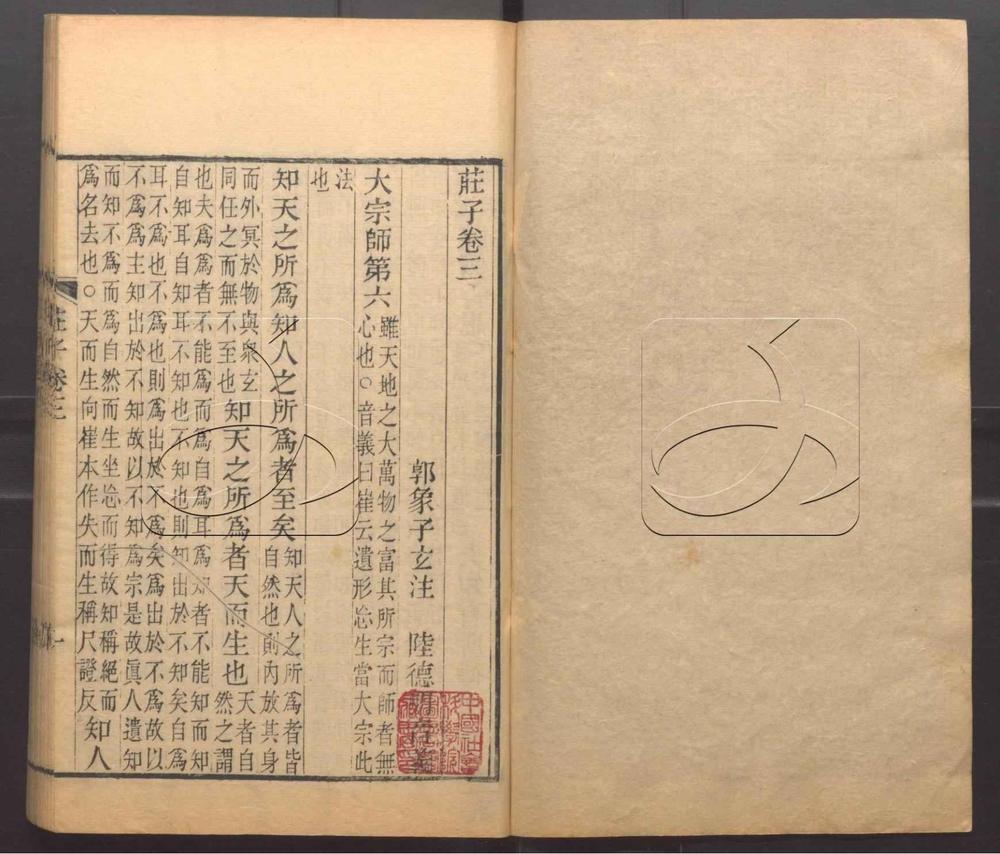 莊子卷三
郭象子玄注　陸德明音義
大宗師第六
雖天地之大萬物之富其所宗而師者無
心也○音義曰崔云遺形忘生當大宗此
法
也
知天之所爲知人之所爲者至矣
知天人之所爲者皆
自然也則内放其身
而外冥於物與衆玄
同任之而無不至也
知天之所爲者天而生也
天者自
然之謂
也夫爲爲者不能爲而爲自爲耳爲知者不能知而知
自知耳自知耳不知也不知也則知出於不知矣自爲
耳不爲也不爲也則爲出於不爲矣爲出於不爲故以
不爲爲主知出於不知故以不知爲宗是故眞人遺知
而知不爲而爲自然而生坐忘而得故知稱絕而
爲名去也○天而生向崔本作失而生稱尺證反
知人
莊子卷三